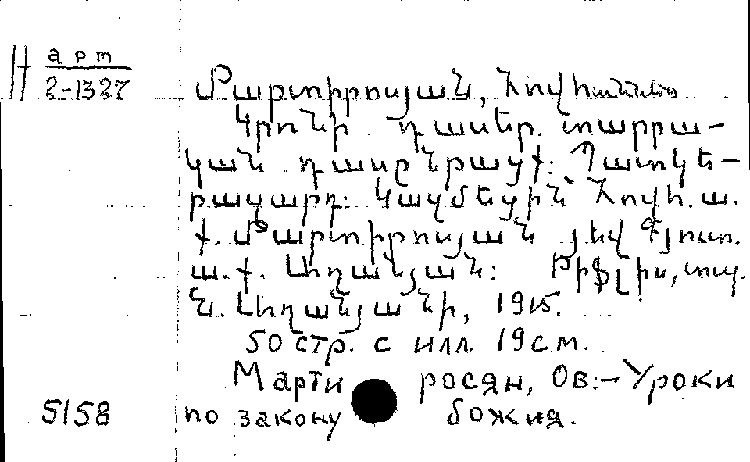 H арт
2-1327
Մարտիրոսյան, Հովհաննես
Կրոնի դասեր. տարրա-
կան դասընթացք: Պատկե-
րազարդ: Կազմեցին՝ Հովհ. ա.
ք. Մարտիրոսյան յեվ Գյուտ.
ա. ք. Աղանյան: Թիֆլիս, տպ.
Ն. Աղանյանի, 1915.
50 стр. с илл. 19 см.
Марти росян, Ов. – Уроки
5158 по закону божия.